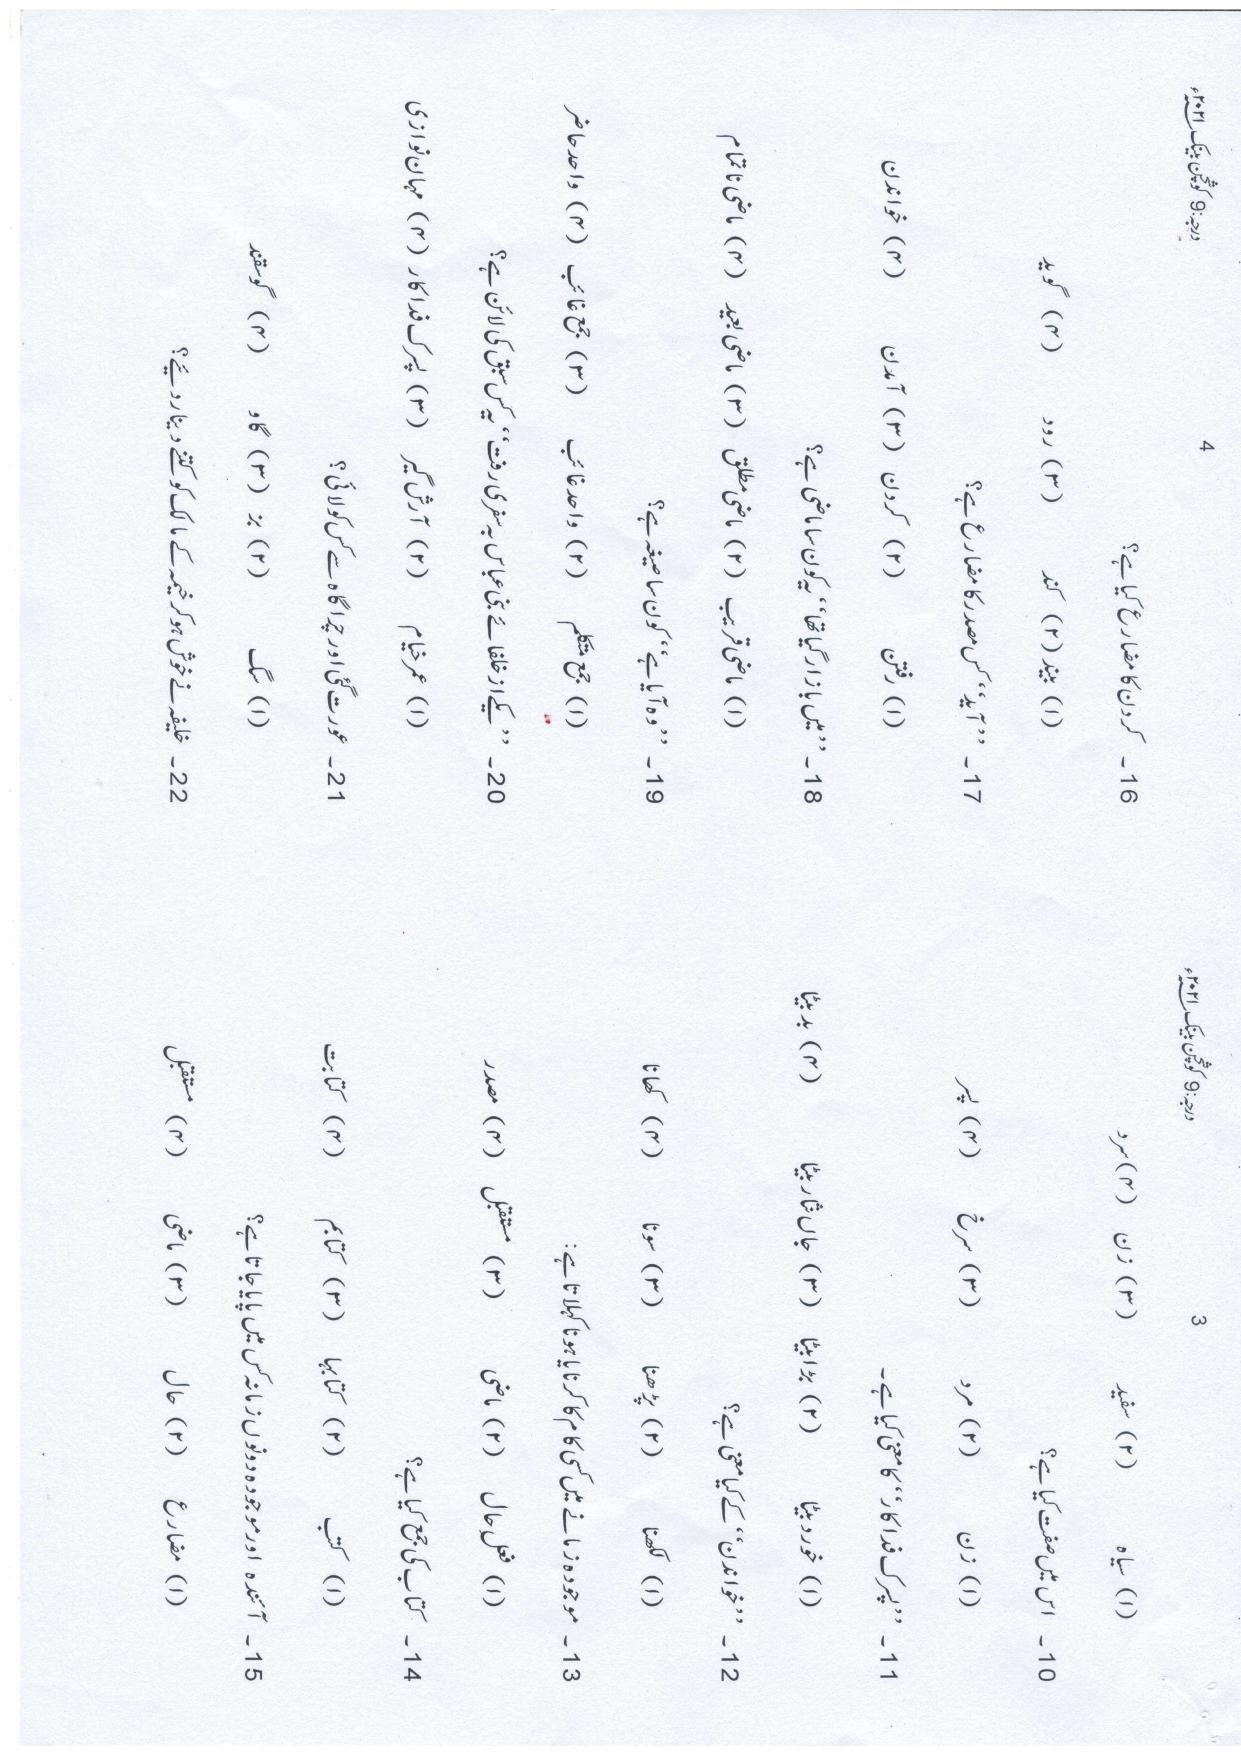 درجہ:9 کوئچن بینک ۲۰۲۱ء
3
(۱) سیاہ (۲) سفید (۳) زن (۴) سرد
10- اس میں صفت کیا ہے؟
(۱) زن (۲) مرد (۳) سرخ (۴) پسر
11- ’’پسرک فداکار‘‘ کا معنی کیا ہے۔
(۱) خورد بیٹا (۲) بڑا بیٹا (۳) جاں نثار بیٹا (۴) بد بیٹا
12- ’’خواندن‘‘ کے کیا معنی ہے؟
(۱) لکھنا (۲) پڑھنا (۳) سونا (۴) کھانا
13- موجودہ زمانے میں کسی کام کا کرنا یا ہونا کہلاتا ہے:
(۱) فعل حال (۲) ماضی (۳) مستقبل (۴) مصدر
14- کتاب کی جمع کیا ہے؟
(۱) کتب (۲) کتابہا (۳) کتابم (۴) کتابت
15- آئندہ اور موجودہ دونوں زمانہ کس میں پایا جاتا ہے؟
(۱) مضارع (۲) حال (۳) ماضی (۴) مستقبل
درجہ:9 کوئچن بینک ۲۰۲۱ء
4
16- کردن کا مضارع کیا ہے؟
(۱) بیند (۲) کند (۳) رود (۴) گوید
17- ’’آید‘‘ کس مصدر کا مضارع ہے؟
(۱) رفتن (۲) کردن (۳) آمدن (۴) خواندن
18- ’’میں بازار گیا تھا‘‘ یہ کون سا ماضی ہے؟
(۱) ماضی قریب (۲) ماضی مطلق (۳) ماضی بعید (۴) ماضی ناتمام
19- ’’وہ آیا ہے‘‘ کون سا صیغہ ہے؟
(۱) جمع متکلم (۲) واحد غائب (۳) جمع غائب (۴) واحد حاضر
20- ’’یکے از خلفائے بنی عباس بہ سفری رفت‘‘ یہ کس سبق کی لائن ہے؟
(۱) عمر خیام (۲) آرش گیر (۳) پسرک فداکار (۴) مہمان نوازی
21- عورت گئی اور چراگاہ سے کس کو لائی؟
(۱) سگ (۲) بز (۳) گاو (۴) گوسفند
22- خلیفہ نے خوش ہو کر خیمہ کے مالک کو کتنے دینار دیئے؟